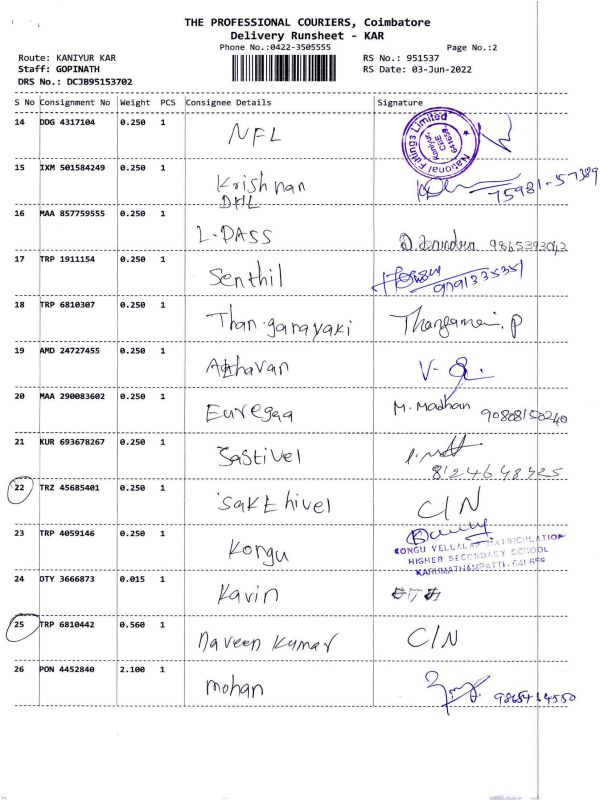 THE PROFESSIONAL COURIERS, Coimbatore
Delivery Runsheet - KAR
Phone No.:0422-3505555 Page No.:2
Route: KANIYUR KAR RS No.: 951537
Staff: GOPINATH RS Date: 03-Jun-2022
DRS No.: DCJB95153702
S No Consignment No Weight PCS Consignee Details Signature
14 DDG 4317104 0.250 1 NFL National Fittings Limited Kaniyur, CBE 641659
15 IXM 501584249 0.250 1 Krishnan 75981-57389
DHL
16 MAA 857759555 0.250 1 L-PASS 9865393042
17 TRP 1911154 0.250 1 Senthil 9791335351
18 TRP 6810307 0.250 1 Than.ganayaki P
19 AMD 24727455 0.250 1 Athavan V-
20 MAA 290083602 0.250 1 Euregaa M. Madhan
21 KUR 693678267 0.250 1 Sastivel 8124648425
22 TRZ 45685401 0.250 1 Sakthivel C/N
23 TRP 4059146 0.250 1 Kongu
KONGU VELLALAR MATRICULATION
HIGHER SECONDARY SCHOOL
KARUMATHAMPATTI-641 659
24 OTY 3666873 0.015 1 Kavin
25 TRP 6810442 0.560 1 Naveen Kumar C/N
26 PON 4452840 2.100 1 mohan